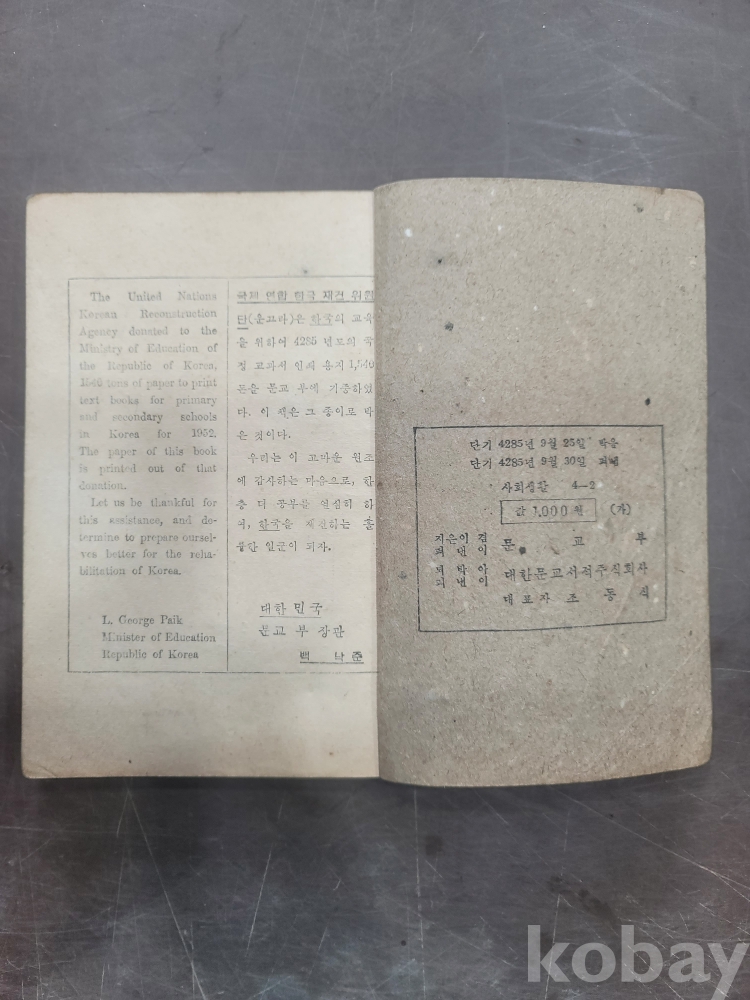 The United Nations
Korean Reconstruction
Agency donated to the
Ministry of Education of
the Republic of Korea,
1540 tons of paper to print
text books for primary
and secondary schools
in Korea for 1952.
The paper of this book
is printed out of that
donation.
Let us be thankful for
this assistance, and de-
termine to prepare oursel-
ves better for the reha-
bilitation of Korea.
L. George Paik
Minister of Education
Republic of Korea
국제 연합 한국 재건 위원
단(운끄라)은 한국의 교육
을 위하여 4285 년도의 국
정 교과서 인쇄 용지 1,540
톤을 문교 부에 기증하였
다. 이 책은 그 종이로 박
은 것이다.
우리는 이 고마운 원조
에 감사하는 마음으로, 한
층 더 공부를 열심히 하
여, 한국을 재건하는 훌
륭한 일군이 되자.
대한 민국
문교 부 장관
백 낙 준
단기 4285년 9월 25일 박음
단기 4285년 9월 30일 펴냄
사회생활 4—2
값 1,000 원 (가)
지은이 겸 펴낸이 문 교 부
대한문교서적주식회사
대표자 조 동 식
kobay